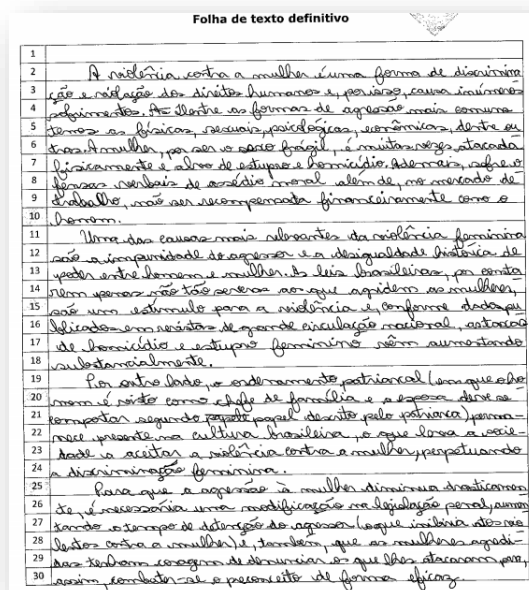 Folha de texto definitivo
1
2 A violência contra a mulher é uma forma de discrimina
3 ção e violação dos direitos humanos e, por isso, causa inúmeros
4 sofrimentos. As Dentre as formas de agressão mais comuns
5 temos as físicas, sexuais, psicológicas, econômicas, dentre ou
6 tras. A mulher, por ser o sexo frágil, é muitas vezes, atacada
7 fisicamente e alvo de estupro e homicídio. Ademais, sofre o
8 fensas verbais de assédio moral além de, no mercado de
9 trabalho, não ser recompensada financeiramente como o
10 homem.
11 Uma das causas mais relevantes da violência feminina
12 são a impunidade do agressor e a desigualdade histórica de
13 poder entre homem e mulher. As leis brasileiras, por conta
14 rem penas não tão severas aos que agridem as mulheres,
15 são um estímulo para a violência e, conforme dados pu
16 blicados em revistas de grande circulação nacional, as taxas
17 de homicídio e estupro feminino vêm aumentando
18 substancialmente.
19 Por outro lado, o ordenamento patriarcal (em que o ho
20 mem é visto como chefe de família e a esposa deve se
21 comportar segundo papel descrito pelo patriarca) perma
22 nece presente na cultura brasileira, o que leva a socie-
23 dade a aceitar a violência contra a mulher, perpetuando
24 a discriminação feminina.
25 Para que a agressão à mulher diminua drasticamen
26 te, é necessária uma modificação na legislação penal, aumen
27 tando o tempo de detenção do agressor (o que inibiria atos vio
28 lentos contra a mulher) e, também, que as mulheres agredi-
29 das tenham coragem de denunciar os que lhes atacaram para,
30 assim, combater-se o preconceito de forma eficaz.